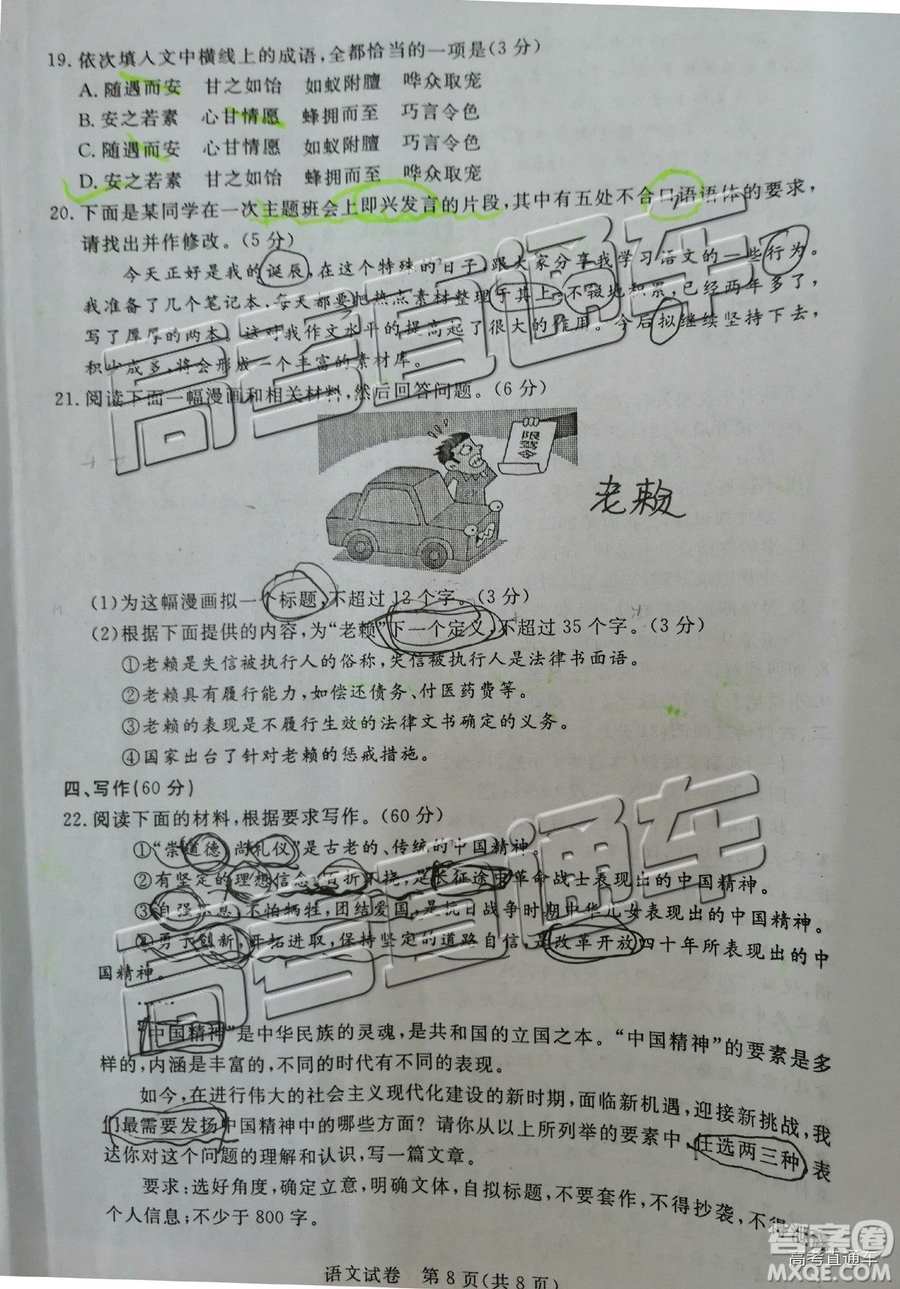 19.依次填入文中横线上的成语,全都恰当的一项是(3分)
A.随遇而安 甘之如饴 如蚁附膻 哗众取宠
B.安之若素 心甘情愿 蜂拥而至 巧言令色
C.随遇而安 心甘情愿 如蚁附膻 巧言令色
D.安之若素 甘之如饴 蜂拥而至 哗众取宠
20.下面是某同学在一次主题班会上即兴发言的片段,其中有五处不合口语语体的要求,
请找出并作修改。(5分)
今天正好是我的诞辰,在这个特殊的日子,跟大家分享我学习语文的一些行为。
我准备了几个笔记本,每天都要把热点素材整理于其上,不辍地积累,已经两年多了,
写了厚厚的两本,这对我作文水平的提高起了很大的作用。今后拟继续坚持下去,
积少成多,将会形成一个丰富的素材库。
21.阅读下面一幅漫画和相关材料,然后回答问题。(6分)
限驾令
老赖
(1)为这幅漫画拟一个标题,不超过12个字。(3分)
(2)根据下面提供的内容,为“老赖”下一个定义,不超过35个字。(3分)
①老赖是失信被执行人的俗称,失信被执行人是法律书面语。
②老赖具有履行能力,如偿还债务、付医药费等。
③老赖的表现是不履行生效的法律文书确定的义务。
④国家出台了针对老赖的惩戒措施。
四、写作(60分)
22.阅读下面的材料,根据要求写作。(60分)
①“崇道德、尚礼仪”是古老的、传统的中国精神。
②有坚定的理想信念,百折不挠,是长征途中革命战士表现出的中国精神。
③自强不息,不怕牺牲,团结爱国,是抗日战争时期中华儿女表现出的中国精神。
④勇于创新,开拓进取,保持坚定的道路自信,是改革开放四十年所表现出的中
国精神。
……
“中国精神”是中华民族的灵魂,是共和国的立国之本。“中国精神”的要素是多
样的,内涵是丰富的,不同的时代有不同的表现。
如今,在进行伟大的社会主义现代化建设的新时期,面临新机遇,迎接新挑战,我
们最需要发扬中国精神中的哪些方面?请你从以上所列举的要素中,任选两三种,表
达你对这个问题的理解和认识,写一篇文章。
要求:选好角度,确定立意,明确文体,自拟标题,不要套作,不得抄袭,不得
个人信息;不少于800字。
语文试卷 第8页(共8页)
高考直通车
高考直通车
答案圈
高考直通车
MXQE.COM